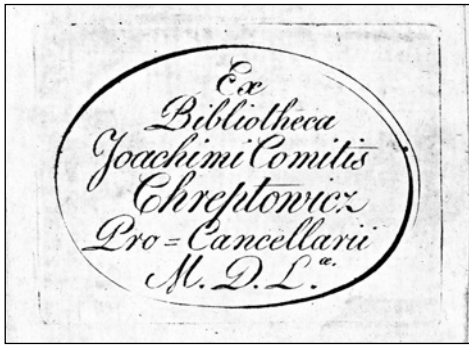 Ex
Bibliotheca
Joachimi Comitis
Chreptowicz
Pro=Cancellarii
M. D. L.æ.